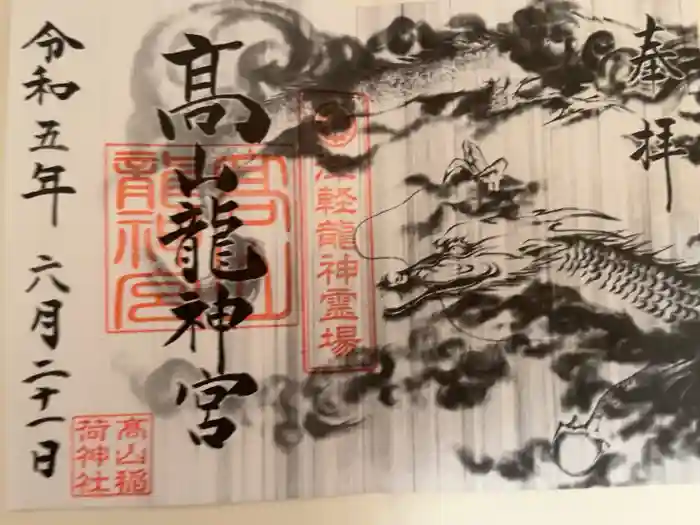 奉拝
津軽龍神霊場
髙山龍神宮
髙山龍神宮
令和五年 六月二十一日
髙山稲荷神社